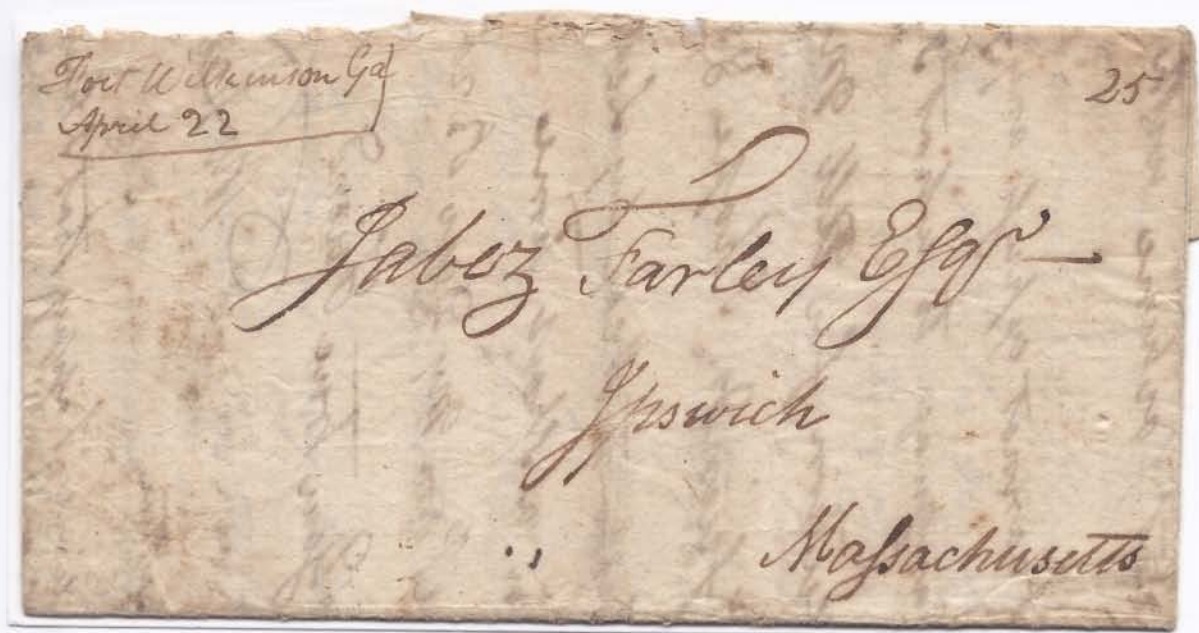 Fort Wilkinson Ga
April 22
25
Jabez Farley Esqr
Ipswich
Massachusetts